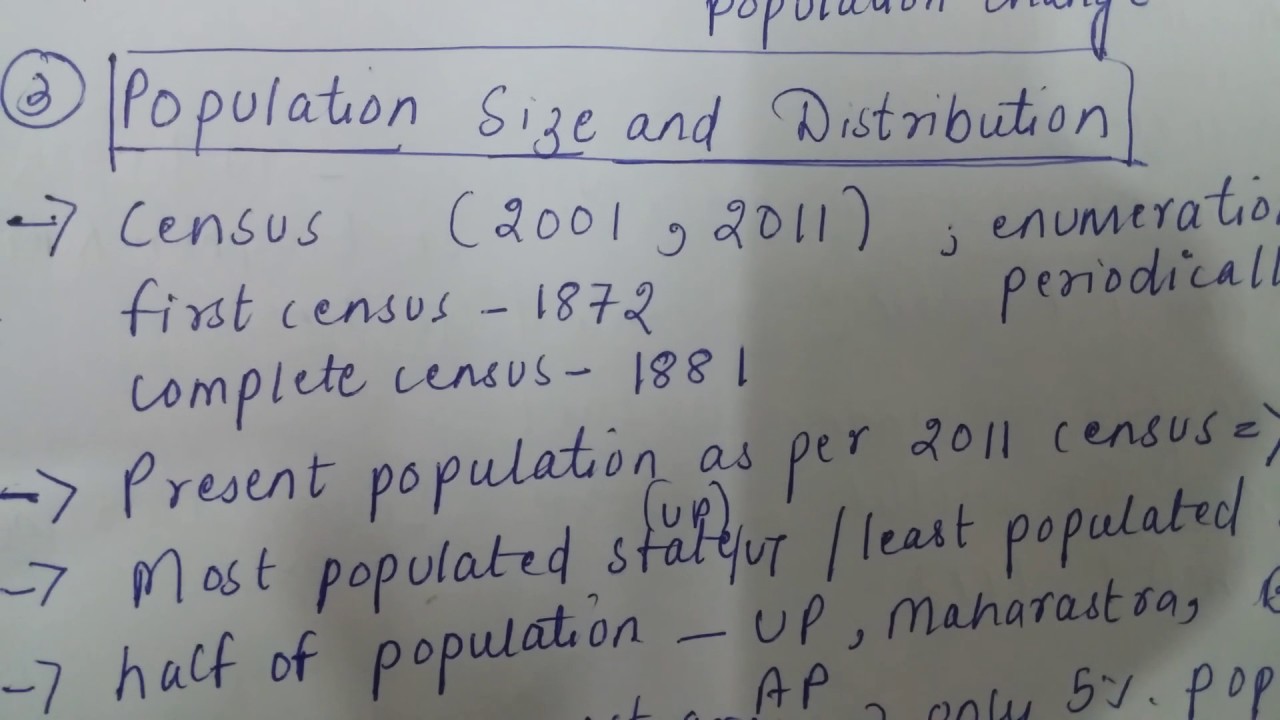 population change
② Population Size and Distribution
→ Census (2001, 2011) ; enumeratio
periodicall
first census - 1872
complete census - 1881
→ Present population as per 2011 census =>
(UP)
→ Most populated state/UT / least populated
→ half of population — UP, Maharastra,
AP
only 5%. pop